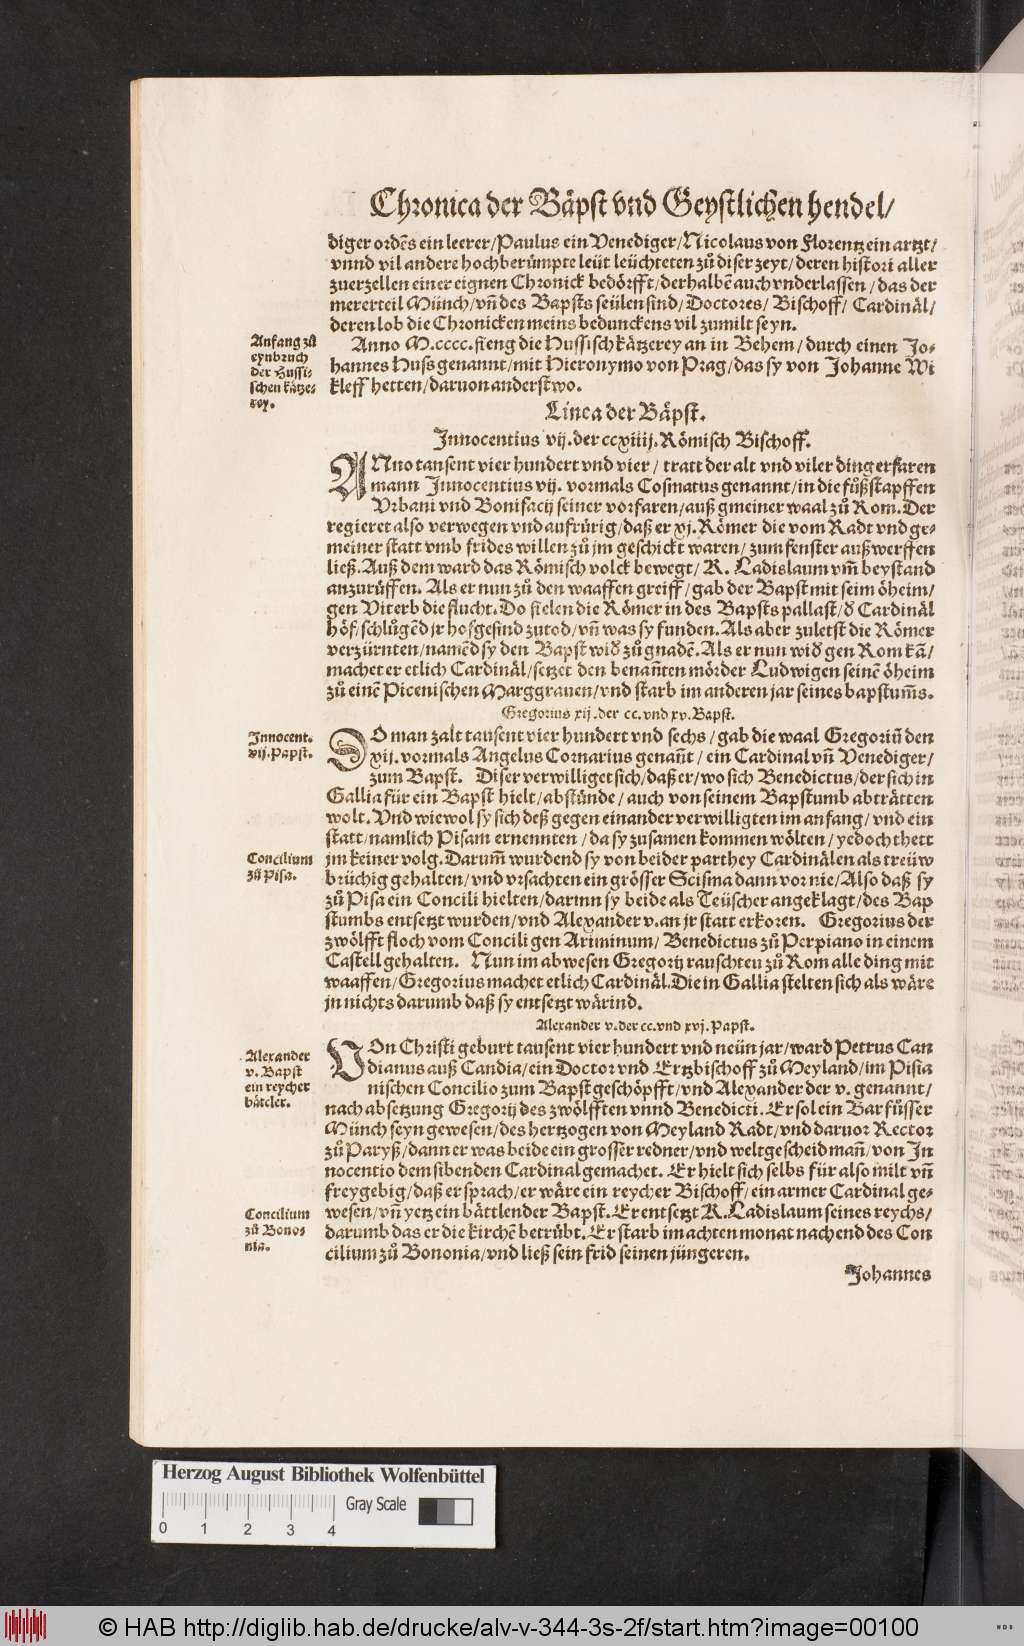 Chronica der Bäpst vnd Geystlichen hendel/
diger ordēs ein leerer/Paulus ein Venediger/Nicolaus von Florentz ein artzt/
vnnd vil andere hochberůmpte leüt leüchteten zů diser zeyt/deren histori aller
zuerzellen einer eignen Chronick bedörfft/derhalbē auch vnderlassen/das der
mererteil Münch/vn̄ des Bapsts seülen sind/Doctores/Bischoff/Cardinäl/
deren lob die Chronicken meins bedunckens vil zumilt seyn.
Anfang zů
eynbruch
der Hussi-
schen kätze-
rey.
Anno M.cccc.fieng die Hussisch kätzerey an in Behem/durch einen Jo-
hannes Huss genannt/mit Hieronymo von Prag/das sy von Johanne Wi
kleff hetten/daruon anderstwo.
Linea der Bäpst.
Innocentius vij.der ccxiiij.Römisch Bischoff.
ANno tausent vier hundert vnd vier/tratt der alt vnd viler ding erfaren
mann Innocentius vij. vormals Cosmatus genannt/in die fůßstapffen
Vrbani vnd Bonifacij seiner vorfaren/auß gmeiner waal zů Rom.Der
regieret also verwegen vnd aufrürig/daß er xj.Römer die vom Radt vnd ge-
meiner statt vmb frides willen zů jm geschickt waren/zum fenster auß werffen
ließ.Auß dem ward das Römisch volck bewegt/K.Ladislaum vm̄ beystand
anzurüffen. Als er nun zů den waaffen greiff/gab der Bapst mit seim öheim/
gen Viterb die flucht.Do fielen die Römer in des Bapsts pallast/ď Cardinäl
höf/schlůgēd jr hofgesind zutod/vn̄ was sy funden.Als aber zuletst die Römer
verzürnten/namēd sy den Bapst wiď zů gnadē.Als er nun wiď gen Rom kā/
machet er etlich Cardinäl/setzet den benan̄ten mörder Ludwigen seinē öheim
zů einē Picenischen Marggrauen/vnd starb im anderen jar seines bapstum̄s.
Gregorius xij.der cc.vnd xv.Bapst.
Innocent.
vij.Papst.
DO man zalt tausent vier hundert vnd sechs/gab die waal Gregoriū den
xij.vormals Angelus Cornarius genan̄t/ein Cardinal vn̄ Venediger/
zum Bapst. Diser verwilliget sich/daß er/wo sich Benedictus/der sich in
Gallia für ein Bapst hielt/abstünde/auch von seinem Bapstumb abträtten
wolt.Vnd wiewol sy sich deß gegen einander verwilligten im anfang/vnd ein
statt/namlich Pisam ernennten/da sy zusamen kommen wölten/yedoch thett
Concilium
zů Pisa.
jm keiner volg.Darum̄ wurdend sy von beider parthey Cardinälen als treüw
brüchig gehalten/vnd vrsachten ein grösser Scisma dann vor nie/Also daß sy
zů Pisa ein Concili hielten/darinn sy beide als Teüscher angeklagt/des Bap
stumbs entsetzt wurden/vnd Alexander v.an jr statt erkoren. Gregorius der
zwölfft floch vom Concili gen Ariminum/Benedictus zů Perpiano in einem
Castell gehalten. Nun im abwesen Gregorij rauschten zů Rom alle ding mit
waaffen/Gregorius machet etlich Cardinäl.Die in Gallia stelten sich als wäre
jn nichts darumb daß sy entsetzt wärind.
Alexander v.der cc.vnd xvj.Papst.
Alexander
v.Bapst
ein reycher
bätcler.
VOn Christi geburt tausent vier hundert vnd neün jar/ward Petrus Can
dianus auß Candia/ein Doctor vnd Ertzbischoff zů Meyland/im Pisia
nischen Concilio zum Bapst geschöpfft/vnd Alexander der v. genannt/
nach absetzung Gregorij des zwölfften vnnd Benedicti.Er sol ein Barfůsser
Münch seyn gewesen/des hertzogen von Meyland Radt/vnd daruor Rector
zů Paryß/dann er was beide ein grosser redner/vnd weltgescheid man̄/von In
nocentio dem sibenden Cardinal gemachet. Er hielt sich selbs für also milt vn̄
freygebig/daß er sprach/er wäre ein reycher Bischoff/ein armer Cardinal ge-
Concilium
zů Bono-
nia.
wesen/vn̄ yetz ein bättlender Bapst.Er entsetzt K.Ladislaum seines reychs/
darumb das er die kirchē betrübt.Er starb im achten monat nachend des Con
cilium zů Bononia/vnd ließ sein frid seinen jüngeren.
Johannes
Herzog August Bibliothek Wolfenbüttel
Gray Scale
0 1 2 3 4
© HAB http://diglib.hab.de/drucke/alv-v-344-3s-2f/start.htm?image=00100